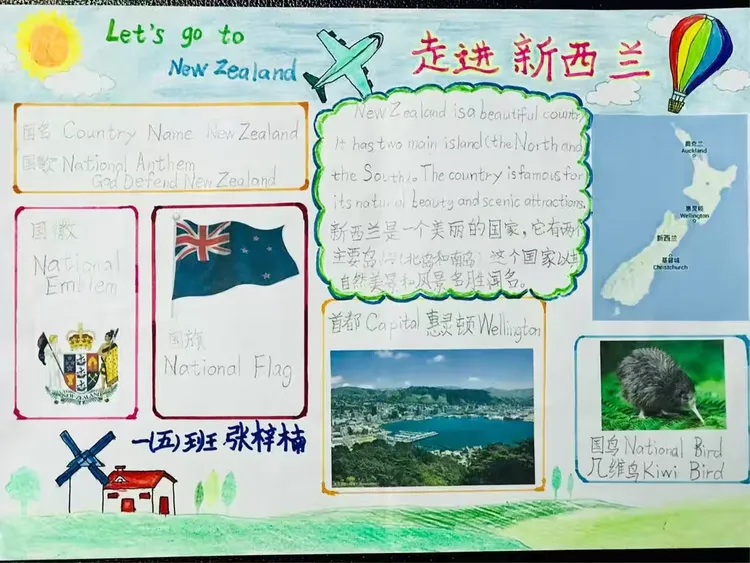 Let's go to
New Zealand
走进新西兰
国名 Country Name New Zealand
国歌 National Anthem
God Defend New Zealand
New Zealand is a beautiful country
It has two main island (the North and
the South)。The country is famous for
its natural beauty and scenic attractions.
新西兰是一个美丽的国家,它有两个
主要岛屿(北岛和南岛)这个国家以其
自然美景和风景名胜闻名。
奥克兰
Auckland
惠灵顿
Wellington
新西兰
基督城
Christchurch
国徽
National
Emblem
国旗
National Flag
首都 Capital 惠灵顿 Wellington
国鸟 National Bird
几维鸟 Kiwi Bird
一(五)班 张梓楠